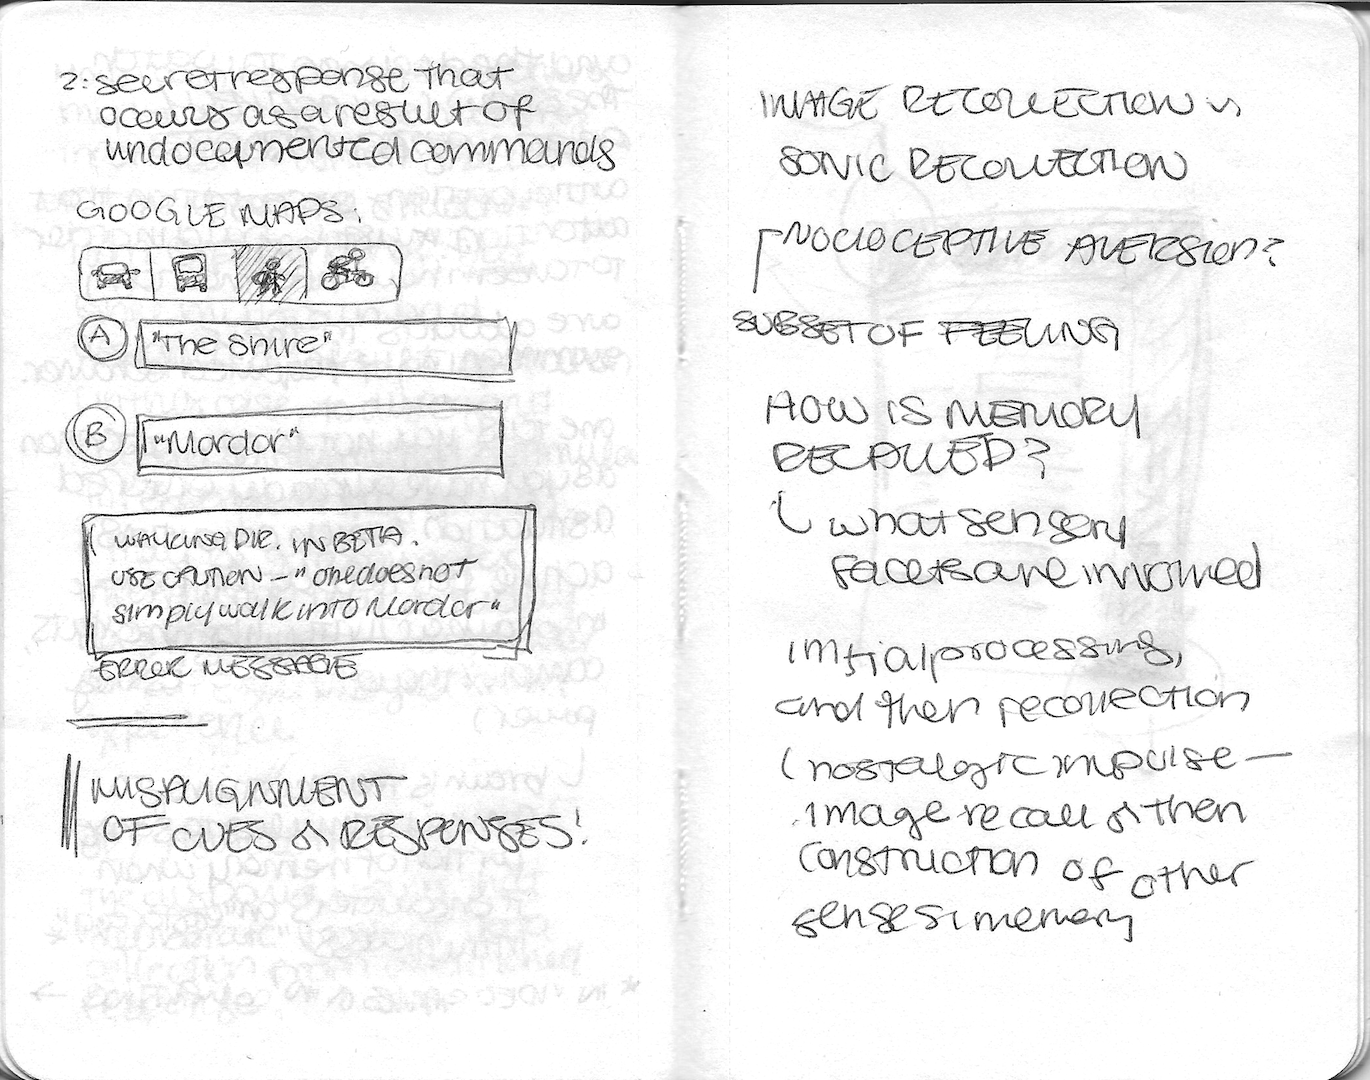 2: secret response that
occurs as a result of
undocumented commands
GOOGLE MAPS:
A "The Shire"
B "Mordor"
WALKING DIR. IN BETA.
USE CAUTION – "one does not
simply walk into Mordor"
ERROR MESSAGE
MISALIGNMENT
OF CUES & RESPONSES!
IMAGE RECOLLECTION vs
SONIC RECOLLECTION
NOCIOCEPTIVE AVERSION?
SUBSET OF FEELING
HOW IS MEMORY
RECALLED?
what sensory
facets are involved
initial processing,
and then recollection
(nostalgic impulse –
image recall & then
construction of other
senses; memory